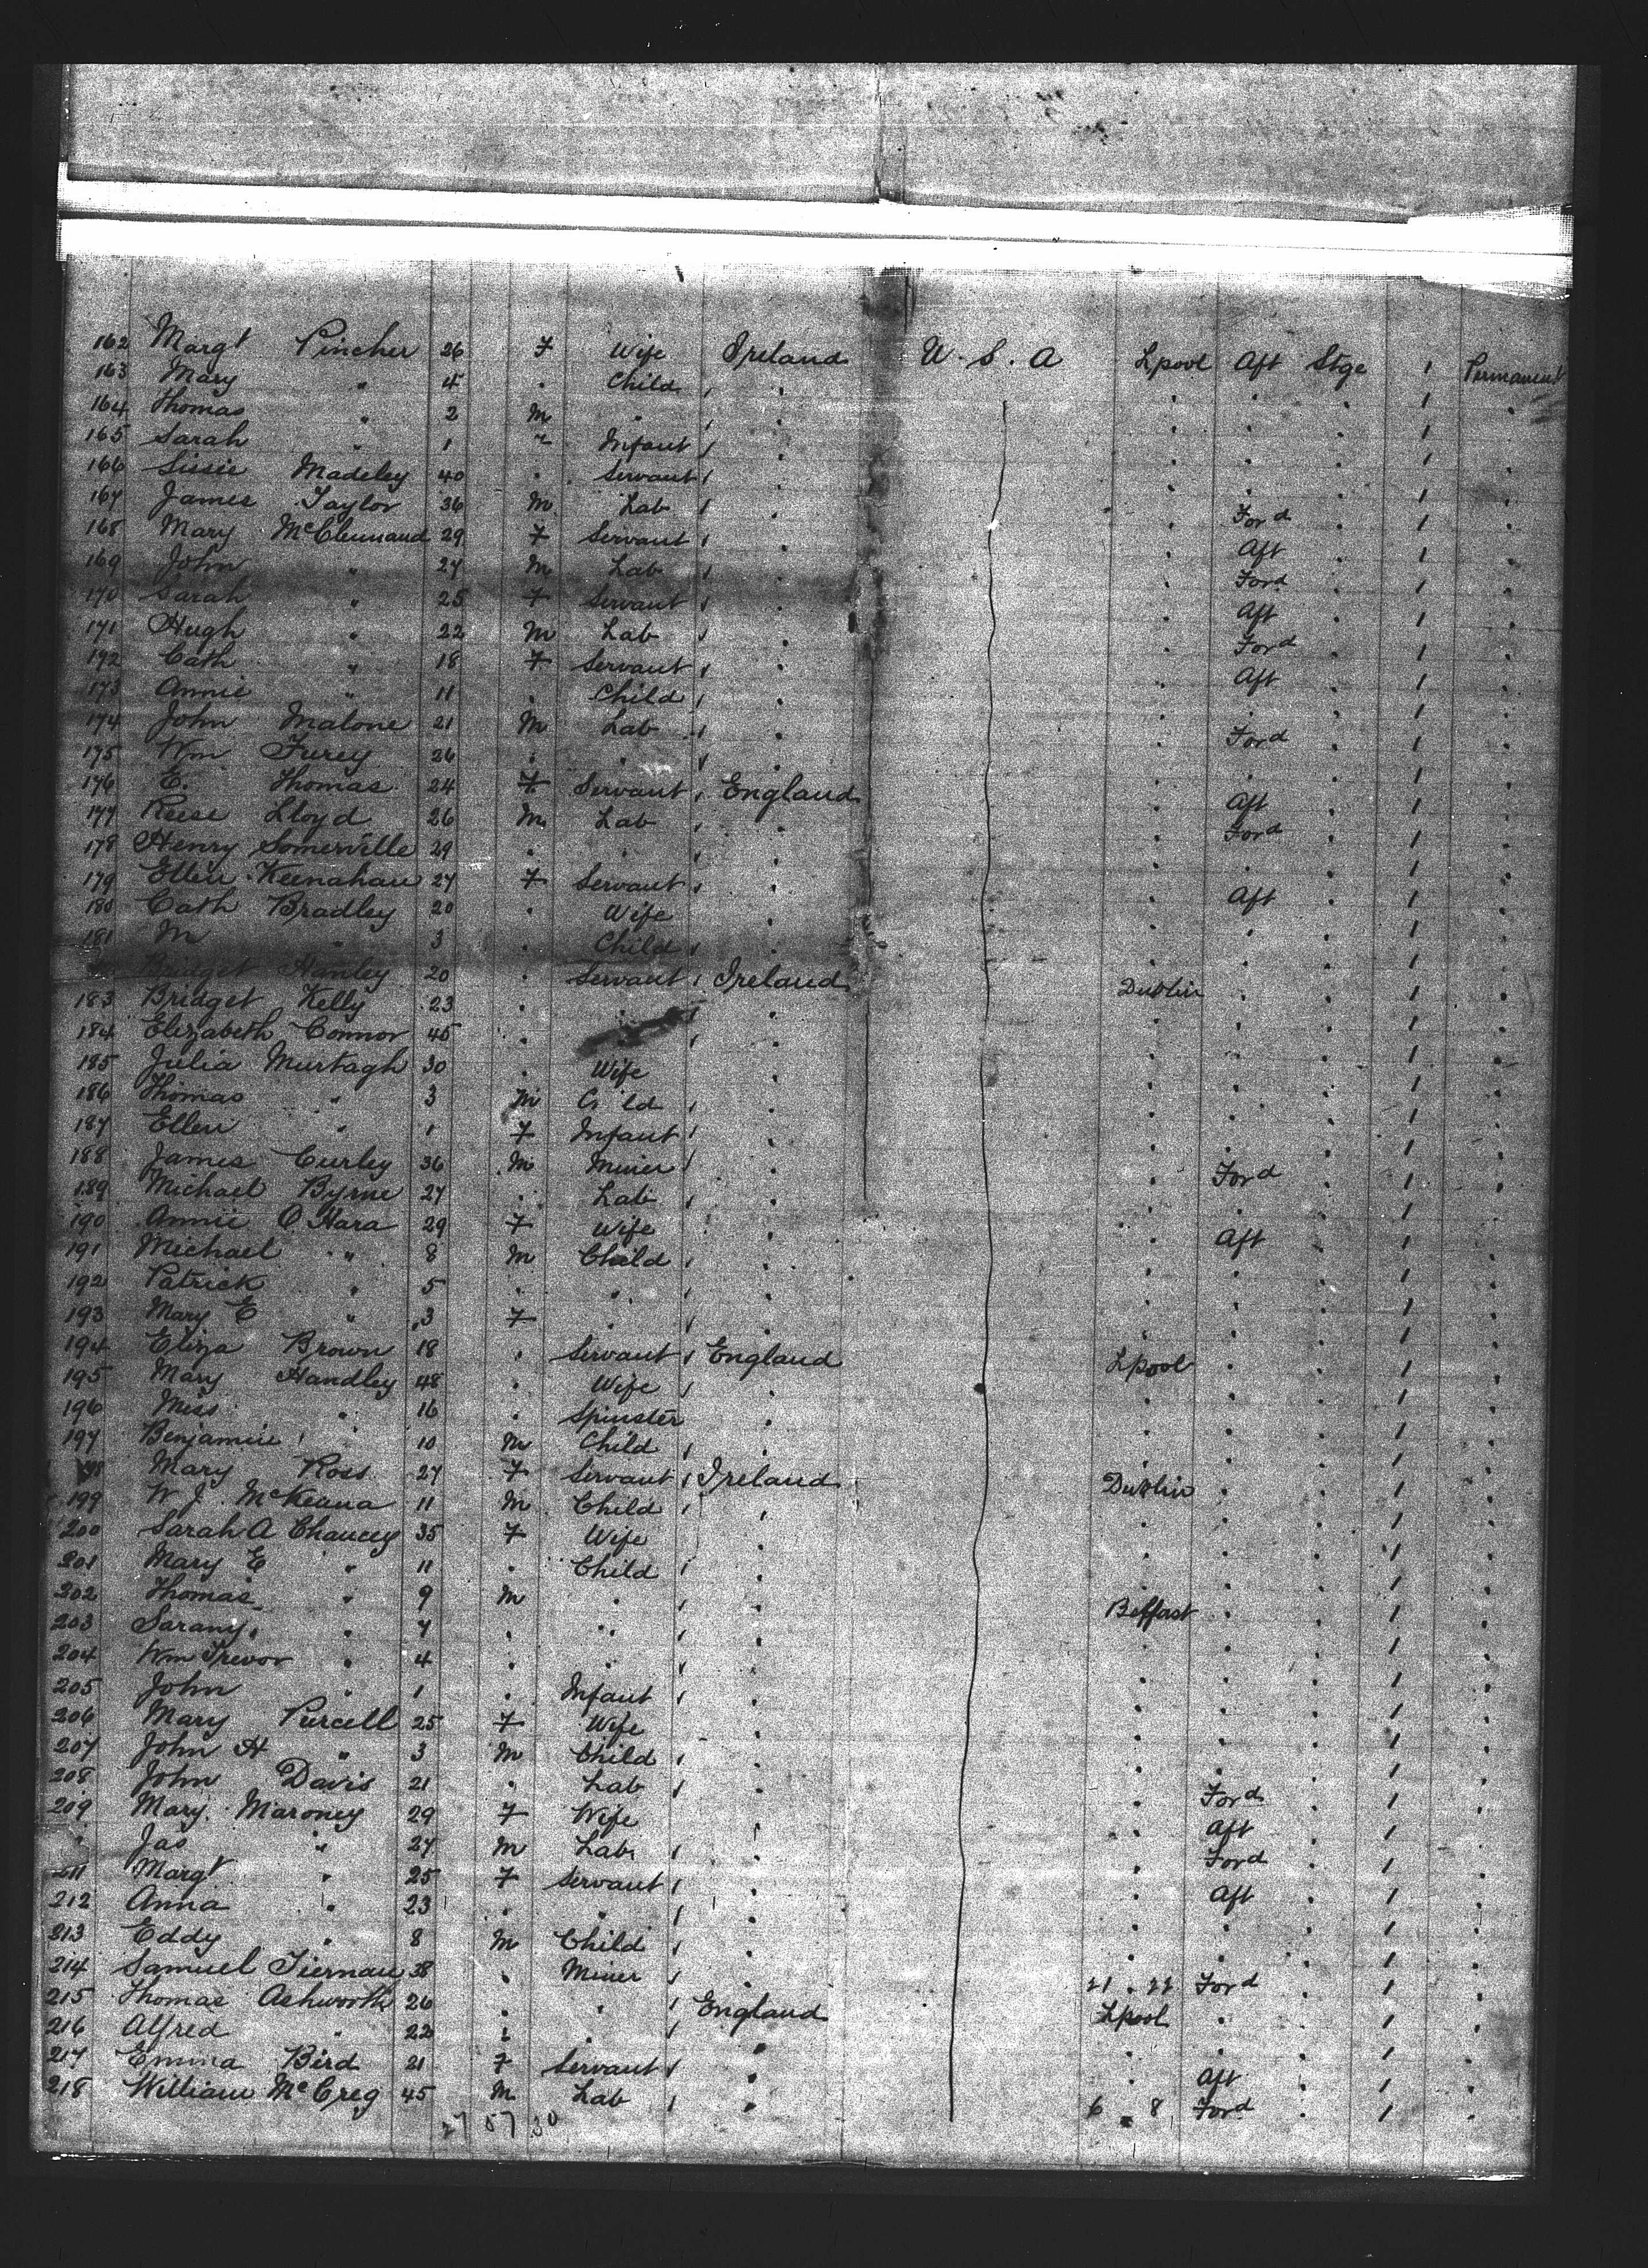 162 Margt Pincher 26 F Wife Ireland U. S. A Lpool Aft Stge 1 Permanent
163 Mary " 4 " Child " " " " 1 "
164 Thomas " 2 M " " " " " 1 "
165 Sarah " 1 Infant " " " " 1 "
166 Lissie Madeley 40 " Servant " " " " 1 "
167 James Taylor 36 M Lab " " Ford " 1 "
168 Mary McClennand 29 F Servant " " Aft " 1 "
169 John " 27 M Lab " " Ford " 1 "
170 Sarah " 25 F Servant " " Aft " 1 "
171 Hugh " 22 M Lab " " Ford " 1 "
172 Cath " 18 F Servant " " Aft " 1 "
173 Annie " 11 " Child " " " " 1 "
174 John Malone 21 M Lab " " Ford " 1 "
175 Wm Furey 26 " " " " " " 1 "
176 E. Thomas 24 F Servant England " Aft " 1 "
177 Reese Lloyd 26 M Lab " " Ford " 1 "
178 Henry Somerville 29 " " " " " " 1 "
179 Ellen Keenahan 27 F Servant " " Aft " 1 "
180 Cath Bradley 20 " Wife " " " " 1 "
181 M " 3 " Child " " " " 1 "
Bridget Hanley 20 " Servant Ireland Dublin " " 1 "
183 Bridget Kelly 23 " " " " " " 1 "
184 Elizabeth Connor 45 " " " " " 1 "
185 Julia Murtagh 30 " Wife " " " " 1 "
186 Thomas " 3 M Child " " " " 1 "
187 Ellen " 1 F Infant " " " " 1 "
188 James Curley 36 M Miner " " Ford " 1 "
189 Michael Byrne 27 " Lab " " " " 1 "
190 Annie O Hara 29 F Wife " " Aft " 1 "
191 Michael " 8 M Child " " " " 1 "
192 Patrick " 5 " " " " " " 1 "
193 Mary E " 3 F " " " " " 1 "
194 Eliza Brown 18 " Servant England Lpool " " 1 "
195 Mary Handley 48 " Wife " " " " 1 "
196 Miss " 16 " Spinster " " " " 1 "
197 Benjamin " 10 M Child " " " " 1 "
198 Mary Ross 27 F Servant Ireland Dublin " " 1 "
199 W J McKeana 11 M Child " " " " 1 "
200 Sarah A Chancey 35 F Wife " " " " 1 "
201 Mary E " 11 " Child " " " " 1 "
202 Thomas " 9 M " " Belfast " " 1 "
203 Sarany " 7 " " " " " " 1 "
204 Wm Trevor " 4 " " " " " " 1 "
205 John " 1 " Infant " " " " 1 "
206 Mary Purcell 25 F Wife " " " " 1 "
207 John H " 3 M Child " " " " 1 "
208 John Davis 21 " Lab " " Ford " 1 "
209 Mary Maroney 29 F Wife " " Aft " 1 "
" Jas " 27 M Lab " " Ford " 1 "
211 Margt " 25 F Servant " " Aft " 1 "
212 Anna " 23 " " " " " " 1 "
213 Eddy " 8 M Child " " " " 1 "
214 Samuel Tiernan 38 " Miner " Ford " 1 "
215 Thomas Ashworth 26 " " England Lpool " " 1 "
216 Alfred " 22 " " " " " " 1 "
217 Emma Bird 21 F Servant " " Aft " 1 "
218 William McCreg 45 M Lab " 6 . 8 Ford " 1 "
27 57 30